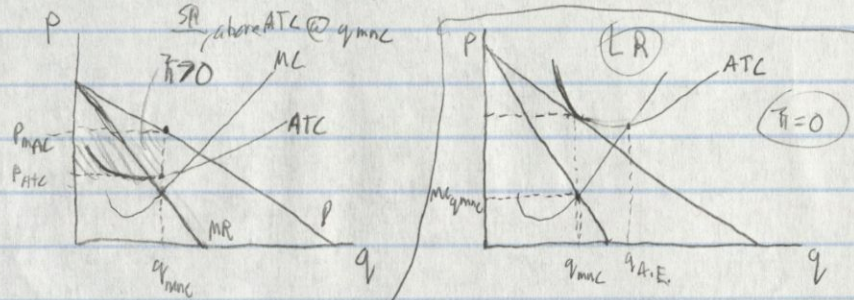 SR
P
above ATC @ qmnc
π>0
MC
ATC
Pmnc
PATC
MR
D
qmnc
q
LR
P
ATC
π=0
MCqmnc
qmnc
qA.E.
q